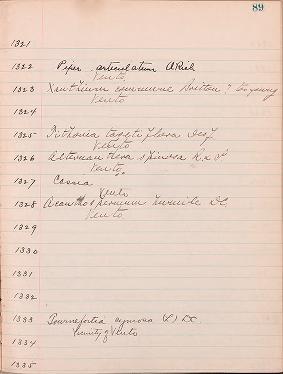 89
1321
1322 Piper articulatum A Rich
Vento
1323 Xanthium commune Britton ? too young
Vento
1324
1325 Tithonia tagetiflora Desf
Vento
1326 Alternanthera spinosa
Vento
1327 Cassia
Vento
1328 Acanthospermum humile DC
Vento
1329
1330
1331
1332
1333 Tournefortia cymosa (L) DC.
Vicinity of Vento
1334
1335